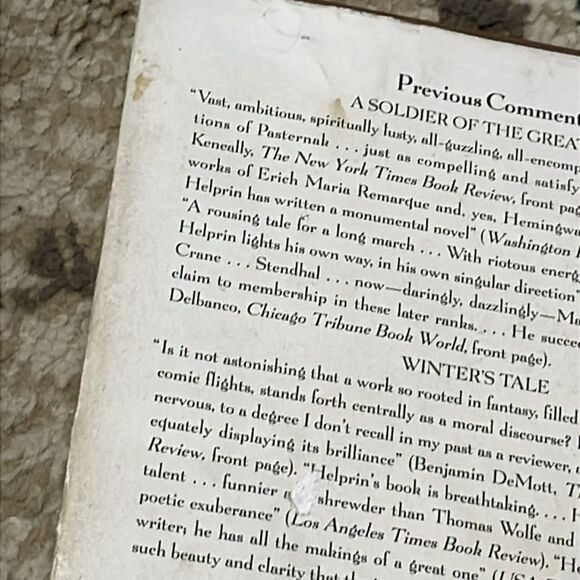 Previous Comment
A SOLDIER OF THE GREA
"Vast, ambitious, spiritually lusty, all-guzzling, all-encomp
tions of Pasternak . . . just as compelling and satisfy
Keneally, The New York Times Book Review, front pag
works of Erich Maria Remarque and, yes, Hemingwa
Helprin has written a monumental novel" (Washington
"A rousing tale for a long march . . . With riotous energ
Helprin lights his own way, in his own singular direction"
Crane . . . Stendhal . . . now—daringly, dazzlingly—Ma
claim to membership in these later ranks. . . . He succe
Delbanco, Chicago Tribune Book World, front page).
WINTER'S TALE
"Is it not astonishing that a work so rooted in fantasy, filled
comic flights, stands forth centrally as a moral discourse?
nervous, to a degree I don't recall in my past as a reviewer,
equately displaying its brilliance" (Benjamin DeMott, T
Review, front page). "Helprin's book is breathtaking. . . . H
talent . . . funnier a shrewder than Thomas Wolfe and
poetic exuberance" (Los Angeles Times Book Review). "He
writer; he has all the makings of a great one"
such beauty and clarity that